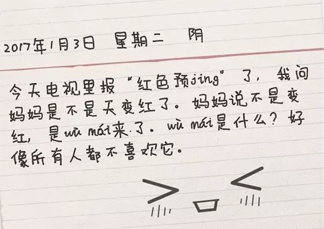 2017年1月3日 星期二 阴
今天电视里报“红色预jǐng”了，我问
妈妈是不是天变红了。妈妈说不是变
红，是wù mái来了。wù mái是什么？好
像所有人都不喜欢它。